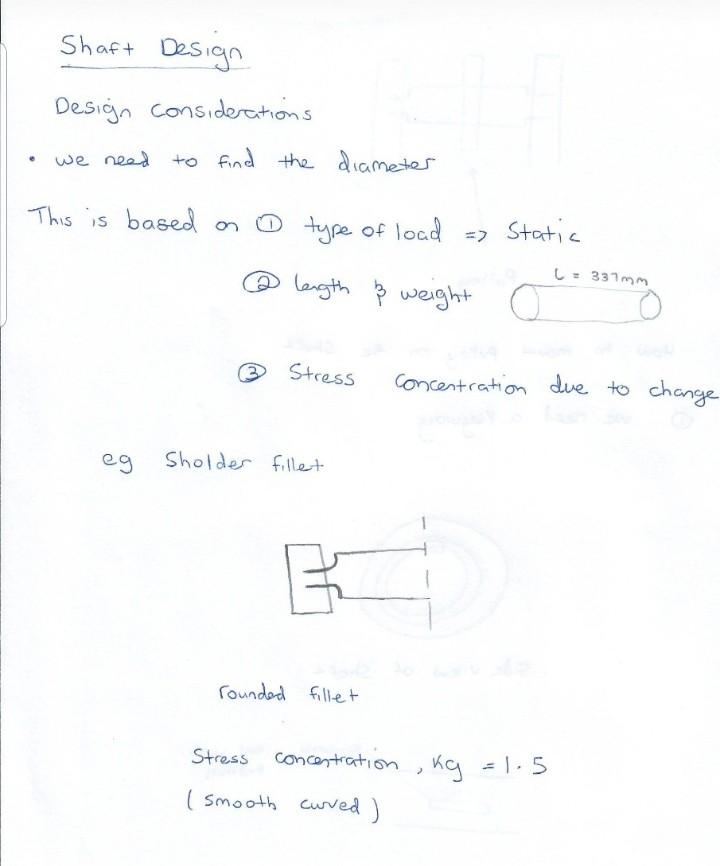 Shaft Design
Design considerations
• we need to find the diameter
This is based on ① type of load => Static
② length & weight
L = 337mm
③ Stress concentration due to change
eg Sholder fillet
rounded fillet
Stress concentration, Kg = 1.5
(smooth curved)